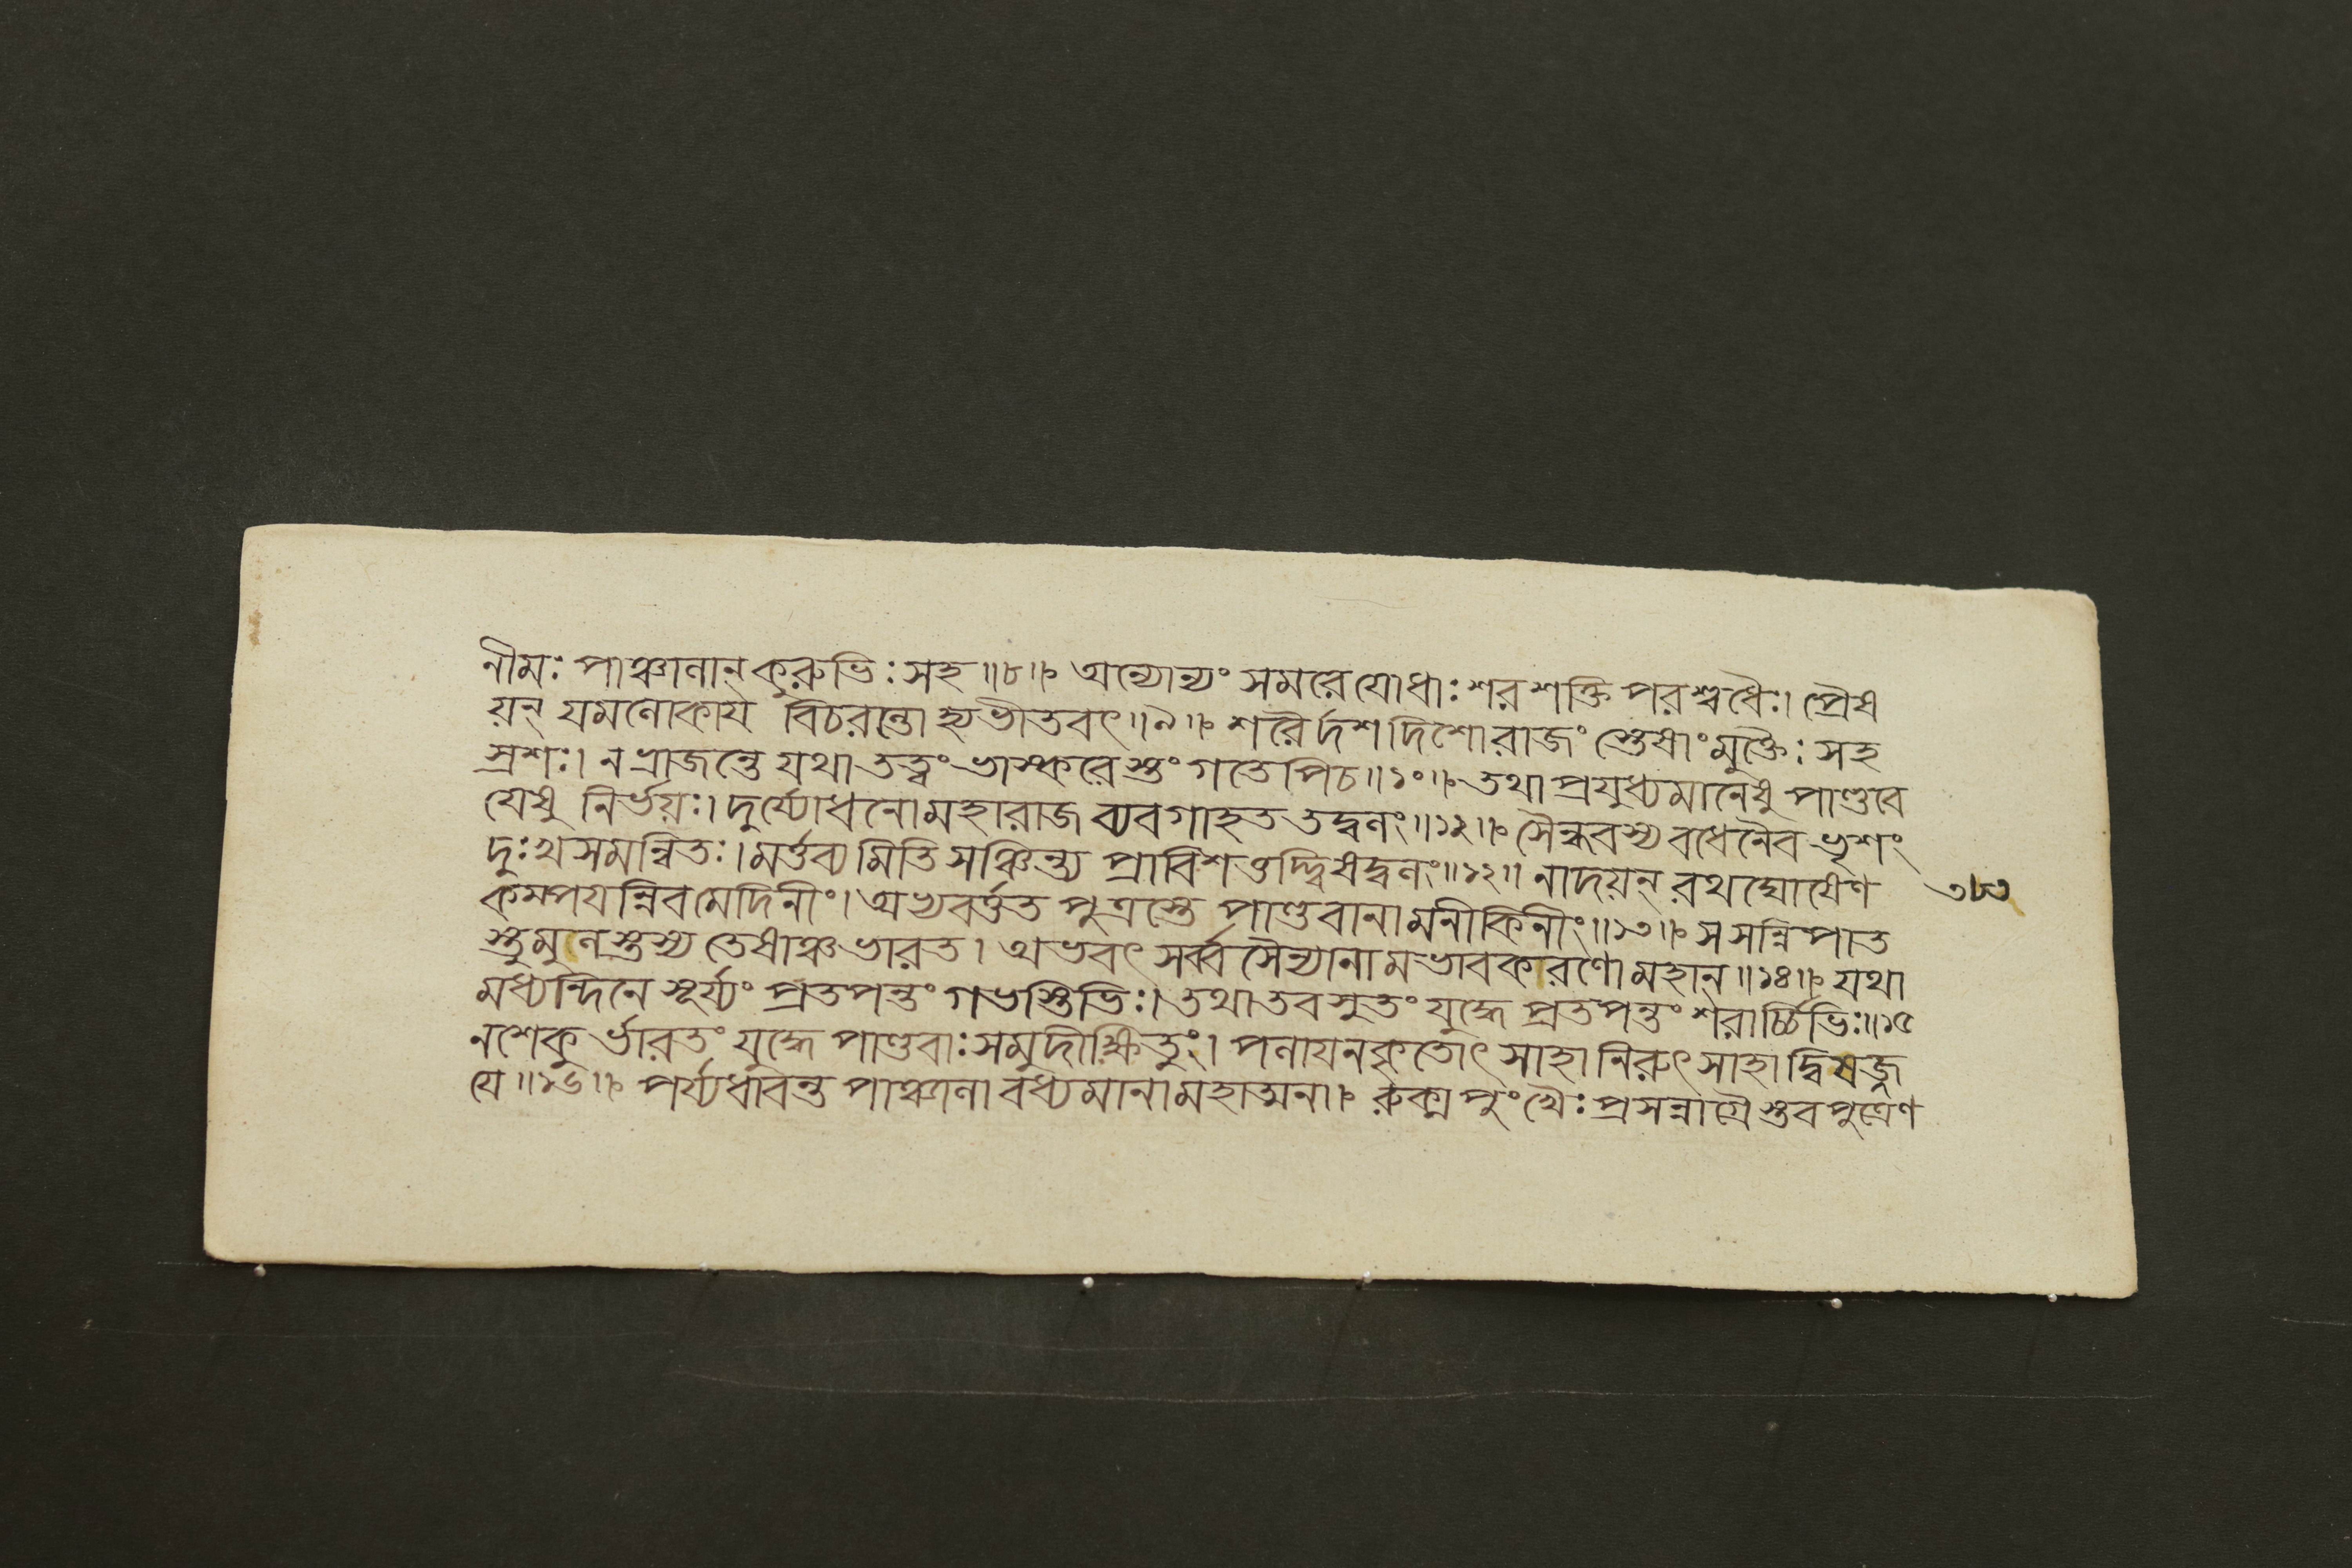 লীমঃ পাঞ্চালান্ কুরুভিঃ সহ ॥৮॥ অন্যোন্যং সমরে যোধাঃ শরশক্তি পরশ্বধৈঃ। প্রৈষ
য়ন্ যমলোকায বিচরন্তো হ্যভীতবৎ ॥৯॥ শরৈর্দশ দিশো রাজং স্তেষাং মুক্তৈঃ সহ
স্রশঃ। ন ভ্রাজন্তে যথা তত্ত্বং ভাস্করে স্তং গতে পিচ ॥১০॥ তথা প্রযুধ্যমানেষু পাণ্ডবে
যেষু নির্ভয়ঃ। দুর্য্যোধনো মহারাজ ব্যবগাহত তদ্বলং ॥১১॥ সৈন্ধবস্য বধেনৈব ভৃশং
দুঃখসমন্বিতঃ। মর্তব্যমিতি সঞ্চিন্ত্য প্রাবিশত্তদ্দ্বিষদ্বলং ॥১২॥ নাদয়ন্ রথঘোষেণ
কম্পযন্নিব মেদিনীং। অভ্যবর্ত্তত পুত্রস্তে পাণ্ডবানামনীকিনীং ॥১৩॥ স সন্নিপাত
স্তুমুলস্তস্য তেষাঞ্চ ভারত। অভবৎ সর্ব্ব সৈন্যানামভাবকারণো মহান ॥১৪॥ যথা
মধ্যন্দিনে সূর্য্যং প্রতপন্তং গভস্তিভিঃ। তথা তব সুতং যুদ্ধে প্রতপন্তং শরার্চ্চিভিঃ ॥১৫
ন শেকুর্ভারতং যুদ্ধে পাণ্ডবাঃ সমুদীক্ষিতুং। পলাযনকৃতোৎসাহা নিরুৎসাহা দ্বিষজ্জ
যে ॥১৬॥ পর্য্যধাবন্ত পাঞ্চালা বধ্যমানা মহাত্মনা। রুক্ম পুংখৈঃ প্রসন্নাগ্রৈস্তব পুত্রেণ
৩৮৩